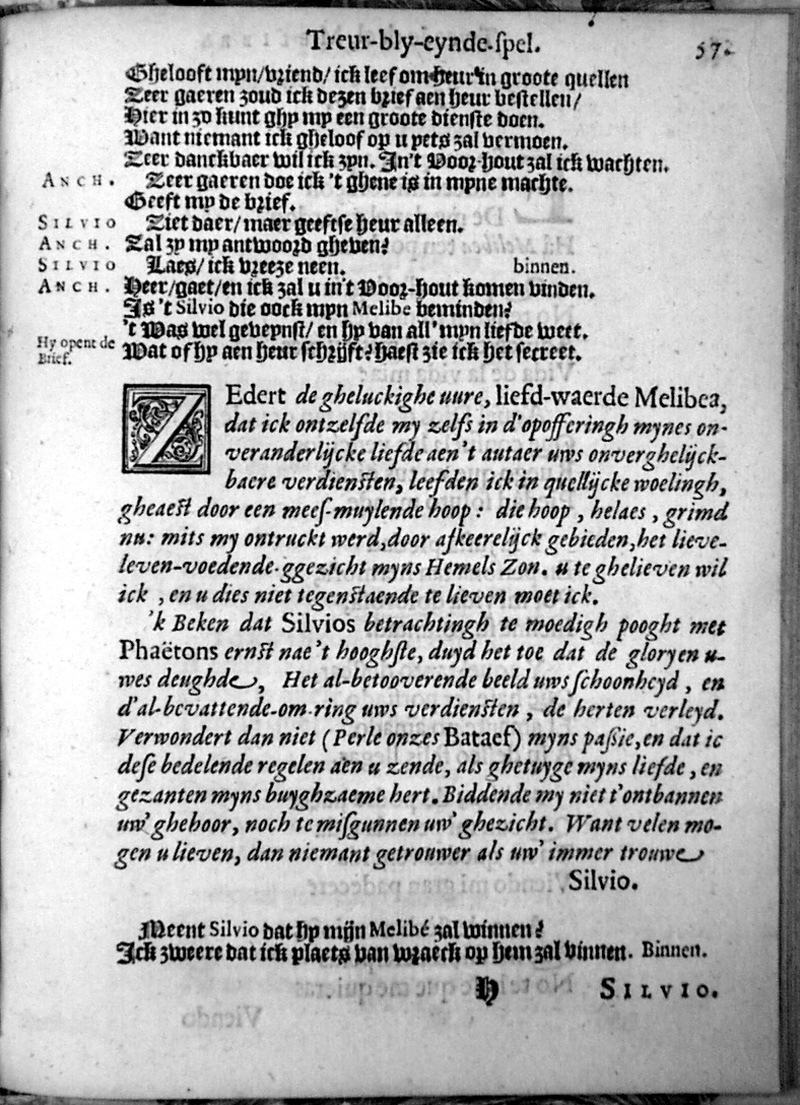 Treur-bly-eynde-spel. 57.
Ghelooft myn/vriend/ick leef om heur in groote quellen
Zeer gaeren zoud ick dezen brief aen heur bestellen/
Hier in zo kunt ghy my een groote dienste doen.
Want niemant ick gheloof op u yets zal vermoen.
Zeer danckbaer wil ick zyn. In't Voor-hout zal ick wachten.
ANCH. Zeer gaeren doe ick 't ghene is in myne machte.
Geeft my de brief.
SILVIO Ziet daer/maer geeftse heur alleen.
ANCH. Zal zy my antwoord gheven?
SILVIO Laes/ick vreeze neen. binnen.
ANCH. Heer/gaet/en ick zal u in't Voor-hout komen vinden.
Is 't Silvio die oock myn Melibe beminden?
't Was wel geveynst/en hy van all' myn liefde weet.
Hy opent de Brief. Wat of hy aen heur schrijft? haest zie ick het secreet.
ZEdert de gheluckighe uure, liefd-waerde Melibea,
dat ick ontzelfde my zelfs in d'opofferingh mynes on-
veranderlijcke liefde aen't autaer uws onverghelijck-
baere verdiensten, leefden ick in quellijcke woelingh,
gheaest door een mees-muylende hoop: die hoop, helaes, grimd
nu: mits my ontruckt werd, door afkeerelijck gebieden, het lieve-
leven-voedende-ggezicht myns Hemels Zon. u te ghelieven wil
ick, en u dies niet tegenstaende te lieven moet ick.
'k Beken dat Silvios betrachtingh te moedigh pooght met
Phaëtons ernst nae 't hooghste, duyd het toe dat de glory en u-
wes deughde, Het al-betooverende beeld uws schoonheyd, en
d'al-bevattende-om-ring uws verdiensten, de herten verleyd.
Verwondert dan niet (Perle onzes Bataef) myns passie, en dat ic
dese bedelende regelen aen u zende, als ghetuyge myns liefde, en
gezanten myns buyghzaeme hert. Biddende my niet t'ontbannen
uw' ghehoor, noch te misgunnen uw' ghezicht. Want velen mo-
gen u lieven, dan niemant getrouwer als uw' immer trouwe
Silvio.
Meent Silvio dat hy mijn Melibé zal winnen?
Ick zweere dat ick plaets van wraeck op hem zal vinnen. Binnen.
H SILVIO.